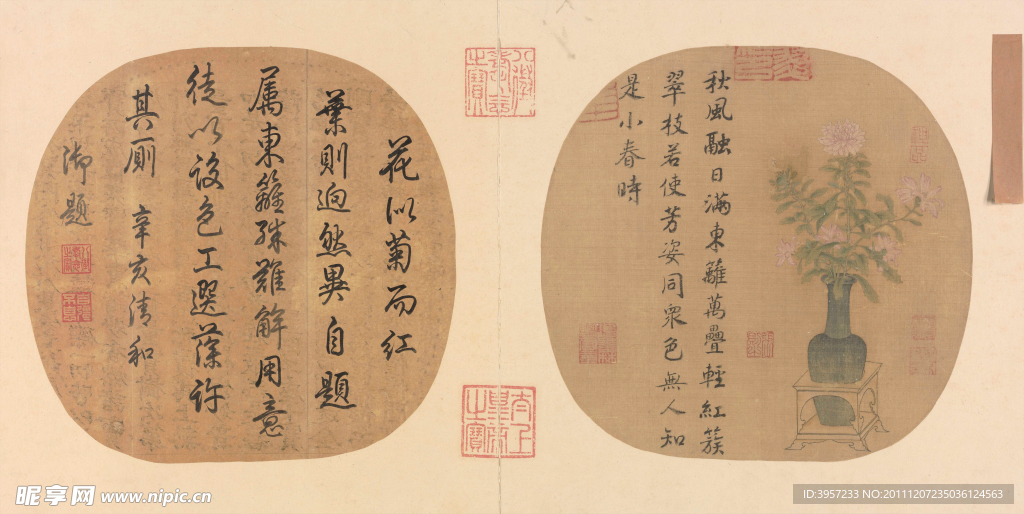 秋風融日滿東籬萬疊輕紅簇
翠枝若使芳姿同眾色無人知
是小春時
花似菊而紅
葉則迥然異自題
屬東籬殊難解用意
徒以設色工選藻許
其厠 辛亥清和
御題
八徵耄念之寶
太上皇帝之寶
昵享网 www.nipic.cn
ID:3957233 NO:20111207235036124563